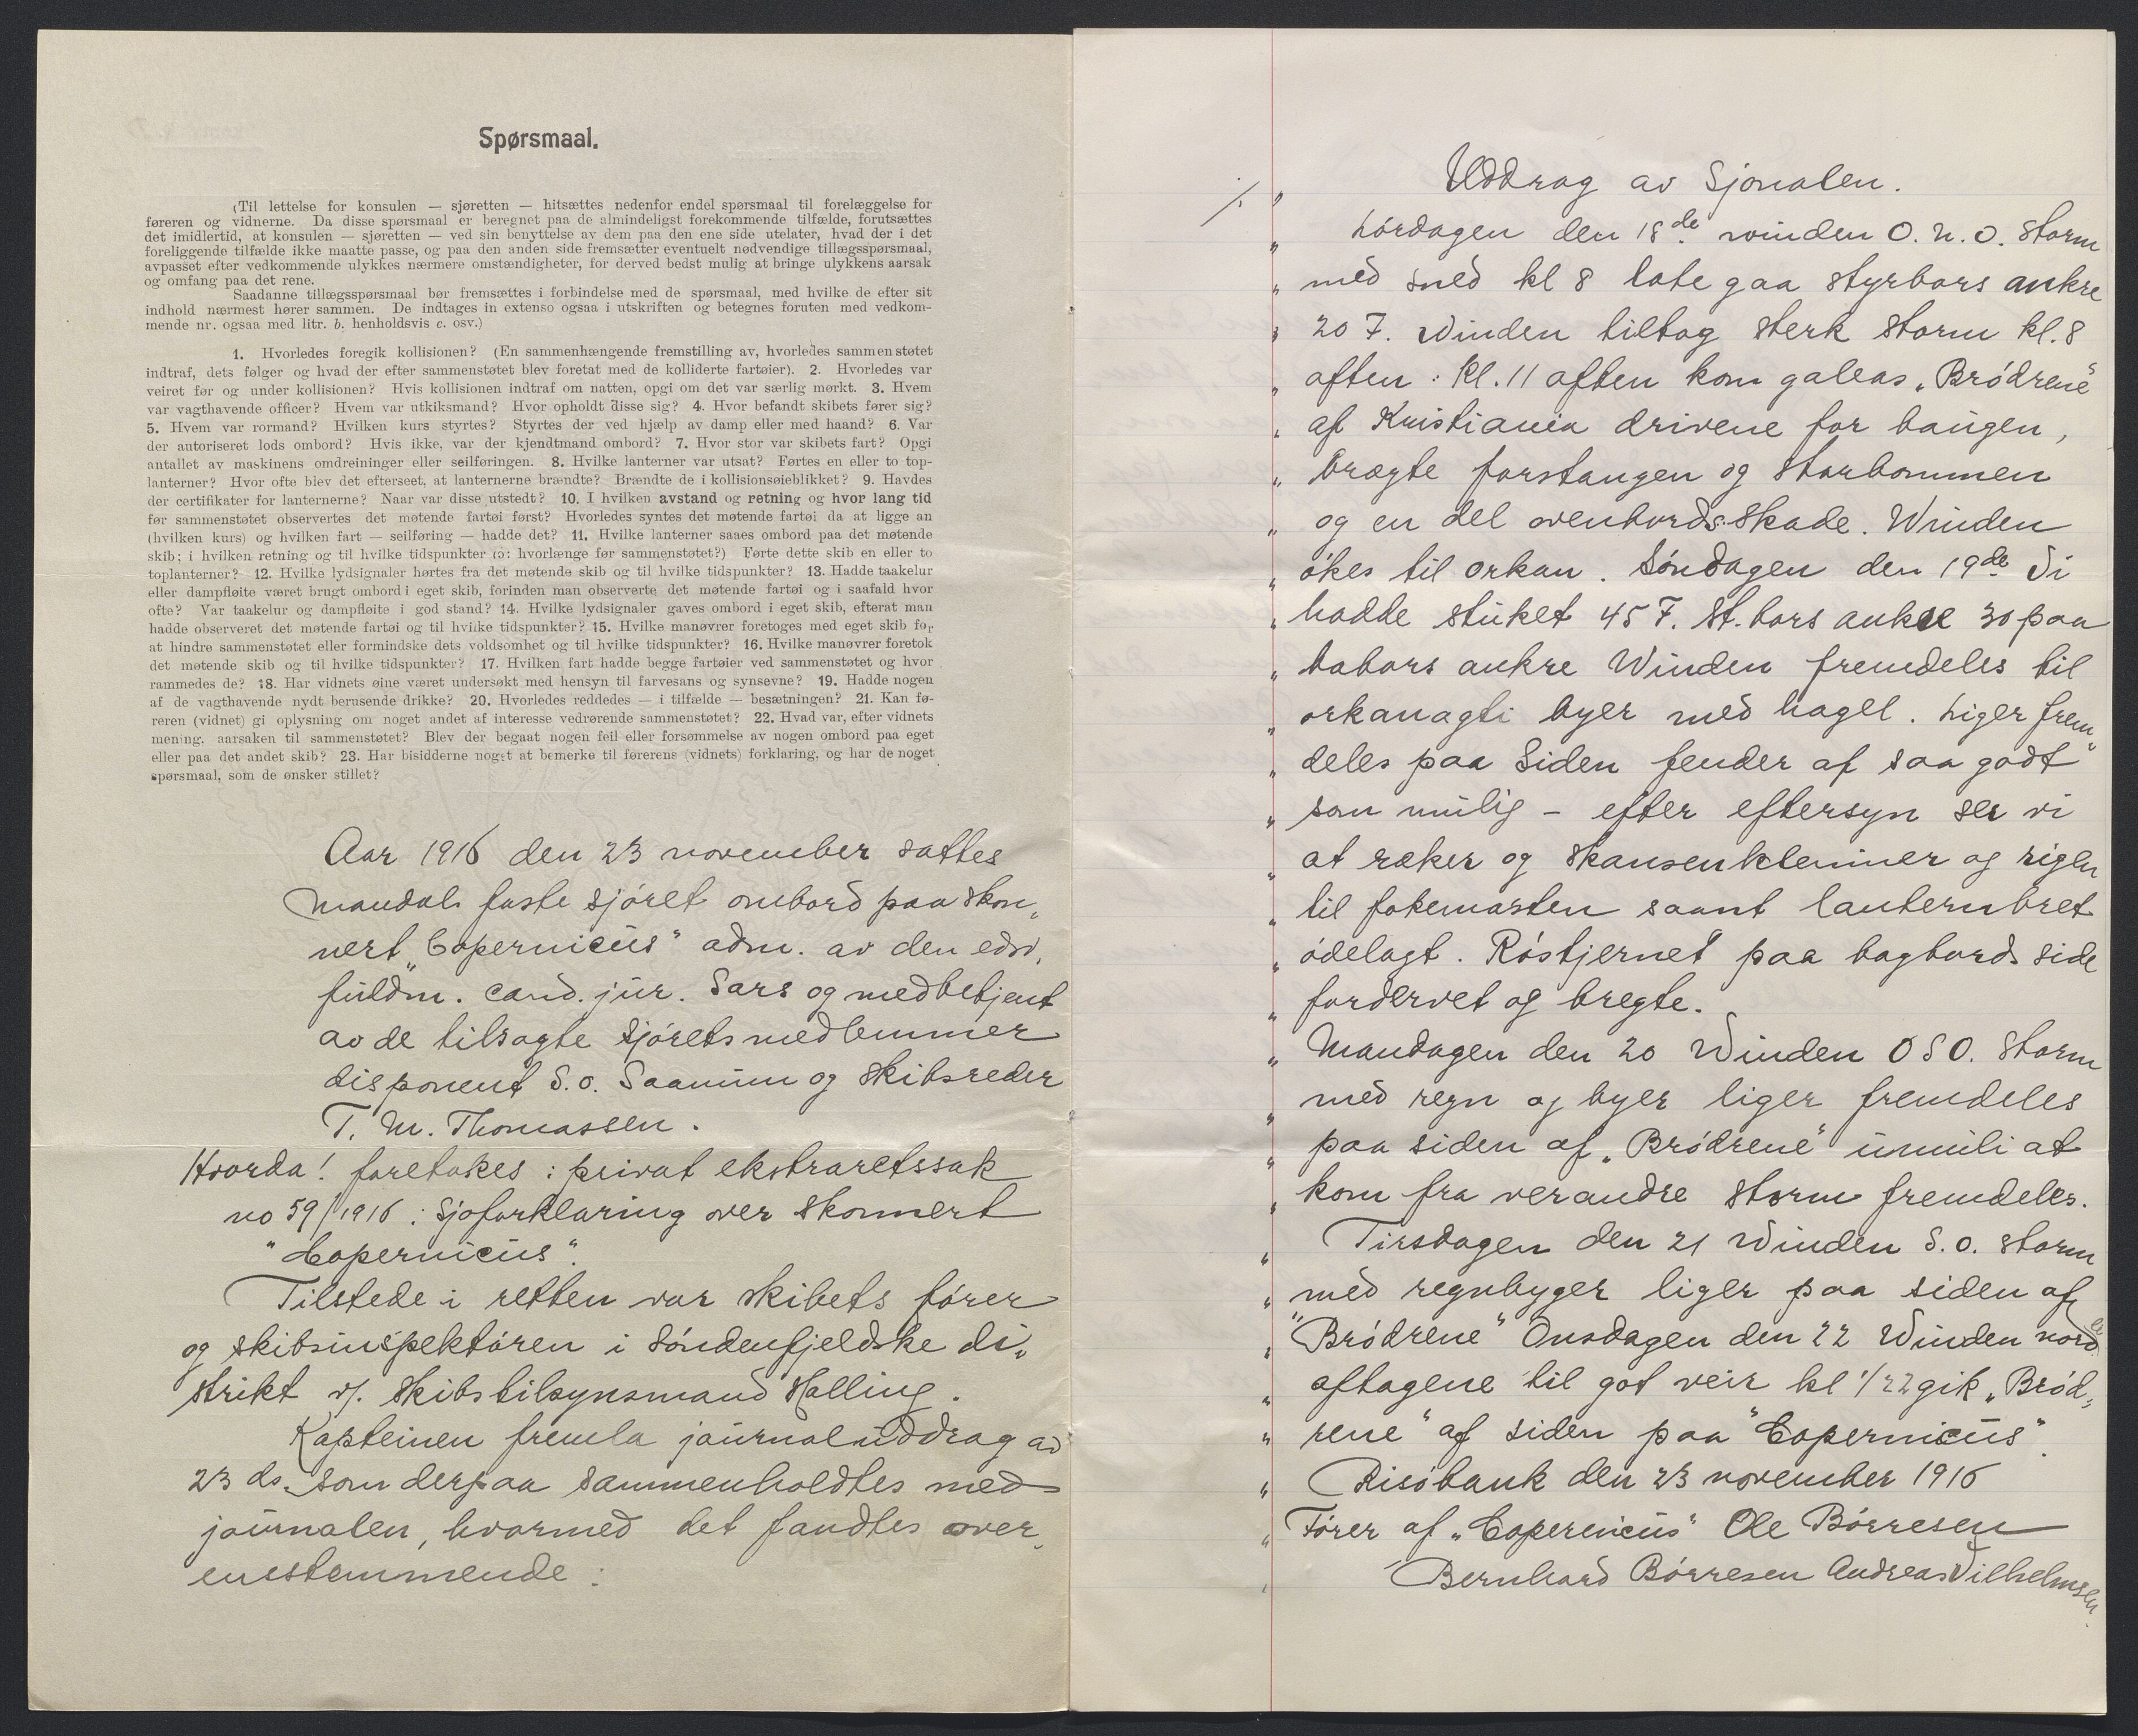 Spørsmaal.
(Til lettelse for konsulen — sjøretten — hitsættes nedenfor endel spørsmaal til forelæggelse for
føreren og vidnerne. Da disse spørsmaal er beregnet paa de almindeligst forekommende tilfælde, forutsættes
det imidlertid, at konsulen — sjøretten — ved sin benyttelse av dem paa den ene side utelater, hvad der i det
foreliggende tilfælde ikke maatte passe, og paa den anden side fremsætter eventuelt nødvendige tillægsspørsmaal,
avpasset efter vedkommende ulykkes nærmere omstændigheter, for derved bedst mulig at bringe ulykkens aarsak
og omfang paa det rene.
Saadanne tillægsspørsmaal bør fremsættes i forbindelse med de spørsmaal, med hvilke de efter sit
indhold nærmest hører sammen. De indtages in extenso ogsaa i utskriften og betegnes foruten med vedkom-
mende nr. ogsaa med litr. b. henholdsvis c. osv.)
1. Hvorledes foregik kollisionen? (En sammenhængende fremstilling av, hvorledes sammenstøtet
indtraf, dets følger og hvad der efter sammenstøtet blev foretat med de kolliderte fartøier). 2. Hvorledes var
veiret før og under kollisionen? Hvis kollisionen indtraf om natten, opgi om det var særlig mørkt. 3. Hvem
var vagthavende officer? Hvem var utkiksmand? Hvor opholdt disse sig? 4. Hvor befandt skibets fører sig?
5. Hvem var rormand? Hvilken kurs styrtes? Styrtes der ved hjælp av damp eller med haand? 6. Var
der autoriseret lods ombord? Hvis ikke, var der kjendtmand ombord? 7. Hvor stor var skibets fart? Opgi
antallet av maskinens omdreininger eller seilføringen. 8. Hvilke lanterner var utsat? Førtes en eller to top-
lanterner? Hvor ofte blev det efterseet, at lanternerne brændte? Brændte de i kollisionsøieblikket? 9. Havdes
der certifikater for lanternerne? Naar var disse utstedt? 10. I hvilken avstand og retning og hvor lang tid
før sammenstøtet observertes det møtende fartøi først? Hvorledes syntes det møtende fartøi da at ligge an
(hvilken kurs) og hvilken fart — seilføring — hadde det? 11. Hvilke lanterner saaes ombord paa det møtende
skib; i hvilken retning og til hvilke tidspunkter (ɔ: hvorlænge før sammenstøtet?) Førte dette skib en eller to
toplanterner? 12. Hvilke lydsignaler hørtes fra det møtende skib og til hvilke tidspunkter? 13. Hadde taakelur
eller dampfløite været brugt ombord i eget skib, forinden man observerte det møtende fartøi og i saafald hvor
ofte? Var taakelur og dampfløite i god stand? 14. Hvilke lydsignaler gaves ombord i eget skib, efterat man
hadde observeret det møtende fartøi og til hvilke tidspunkter? 15. Hvilke manøvrer foretoges med eget skib for
at hindre sammenstøtet eller formindske dets voldsomhet og til hvilke tidspunkter? 16. Hvilke manøvrer foretok
det møtende skib og til hvilke tidspunkter? 17. Hvilken fart hadde begge fartøier ved sammenstøtet og hvor
rammedes de? 18. Har vidnets øine været undersøkt med hensyn til farvesans og synsevne? 19. Hadde nogen
af de vagthavende nydt berusende drikke? 20. Hvorledes reddedes — i tilfælde — besætningen? 21. Kan fø-
reren (vidnet) gi oplysning om noget andet af interesse vedrørende sammenstøtet? 22. Hvad var, efter vidnets
mening, aarsaken til sammenstøtet? Blev der begaat nogen feil eller forsømmelse av nogen ombord paa eget
eller paa det andet skib? 23. Har bisidderne noget at bemerke til førerens (vidnets) forklaring, og har de noget
spørsmaal, som de ønsker stillet?
Aar 1916 den 23 november sattes
Mandals faste sjöret ombord paa skon„
nert „Copernicus" adm. av den edsv.
fuldm. cand. jur. Sars og medbetjent
av de tilsagte sjöretsmedlemmer
disponent S. O. Saanum og skibsreder
T. M. Thomassen.
Hvorda! foretokes: privat ekstraretssak
no 59/1916: Sjøforklaring over skonnert
"Copernicus".
Tilstede i retten var skibets förer
og skibsinspektören i Söndenfjeldske di„
strikt v/. skibstilsynsmand Halling.
Kapteinen fremla journaluddrag av
23 ds. som derpaa sammenholdtes med
journalen, hvormed det fandtes over„
enstemmende:
./. „ Uddrag av Sjonalen.
„ Lördagen den 18de winden O. N. O. Storm
„ med sned kl 8 late gaa styrbors ankre
„ 20 F. Winden tiltog sterk storm kl. 8
„ aften: Kl. 11 aften kom galeas „Brödrene"
„ af Kristiania drivene for baugen,
„ brægte forstangen og storbommen
„ og en del ovenbords skade. Winden
„ ökes til orkan. Söndagen den 19de Vi
„ hadde stuket 45 F. St. bors ankre 30 paa
„ babors ankre Winden fremdeles til
„ orkanagti byer med hagel. Liger frem„
„ deles paa Siden fender af saa godt"
„ som mulig – efter eftersyn ser vi
„ at ræker og skansenklemmer og rigen
„ til fokemasten samt lanternbret
„ ödelagt. Röstjernet paa bagbords side
„ fordervet og bregte.
„ Mandagen den 20 Winden O S O. Storm
„ med regn og byer liger fremdeles
„ paa siden af „Brödrene" umuli at
„ kom fra verandre storm fremdeles.
„ Tirsdagen den 21 Winden S. O. storm
„ med regnbyger liger paa siden af
„ "Brödrene" Onsdagen den 22 Winden nord
„ aftagene til got veir kl 1/22 gik „Bröd„
„ rene" af siden paa "Copernicus".
„ Risöbank den 23 november 1916
„ Förer af „Copernicus" Ole Börresen
„ Bernhard Börresen Andreas Vilhelmsen.